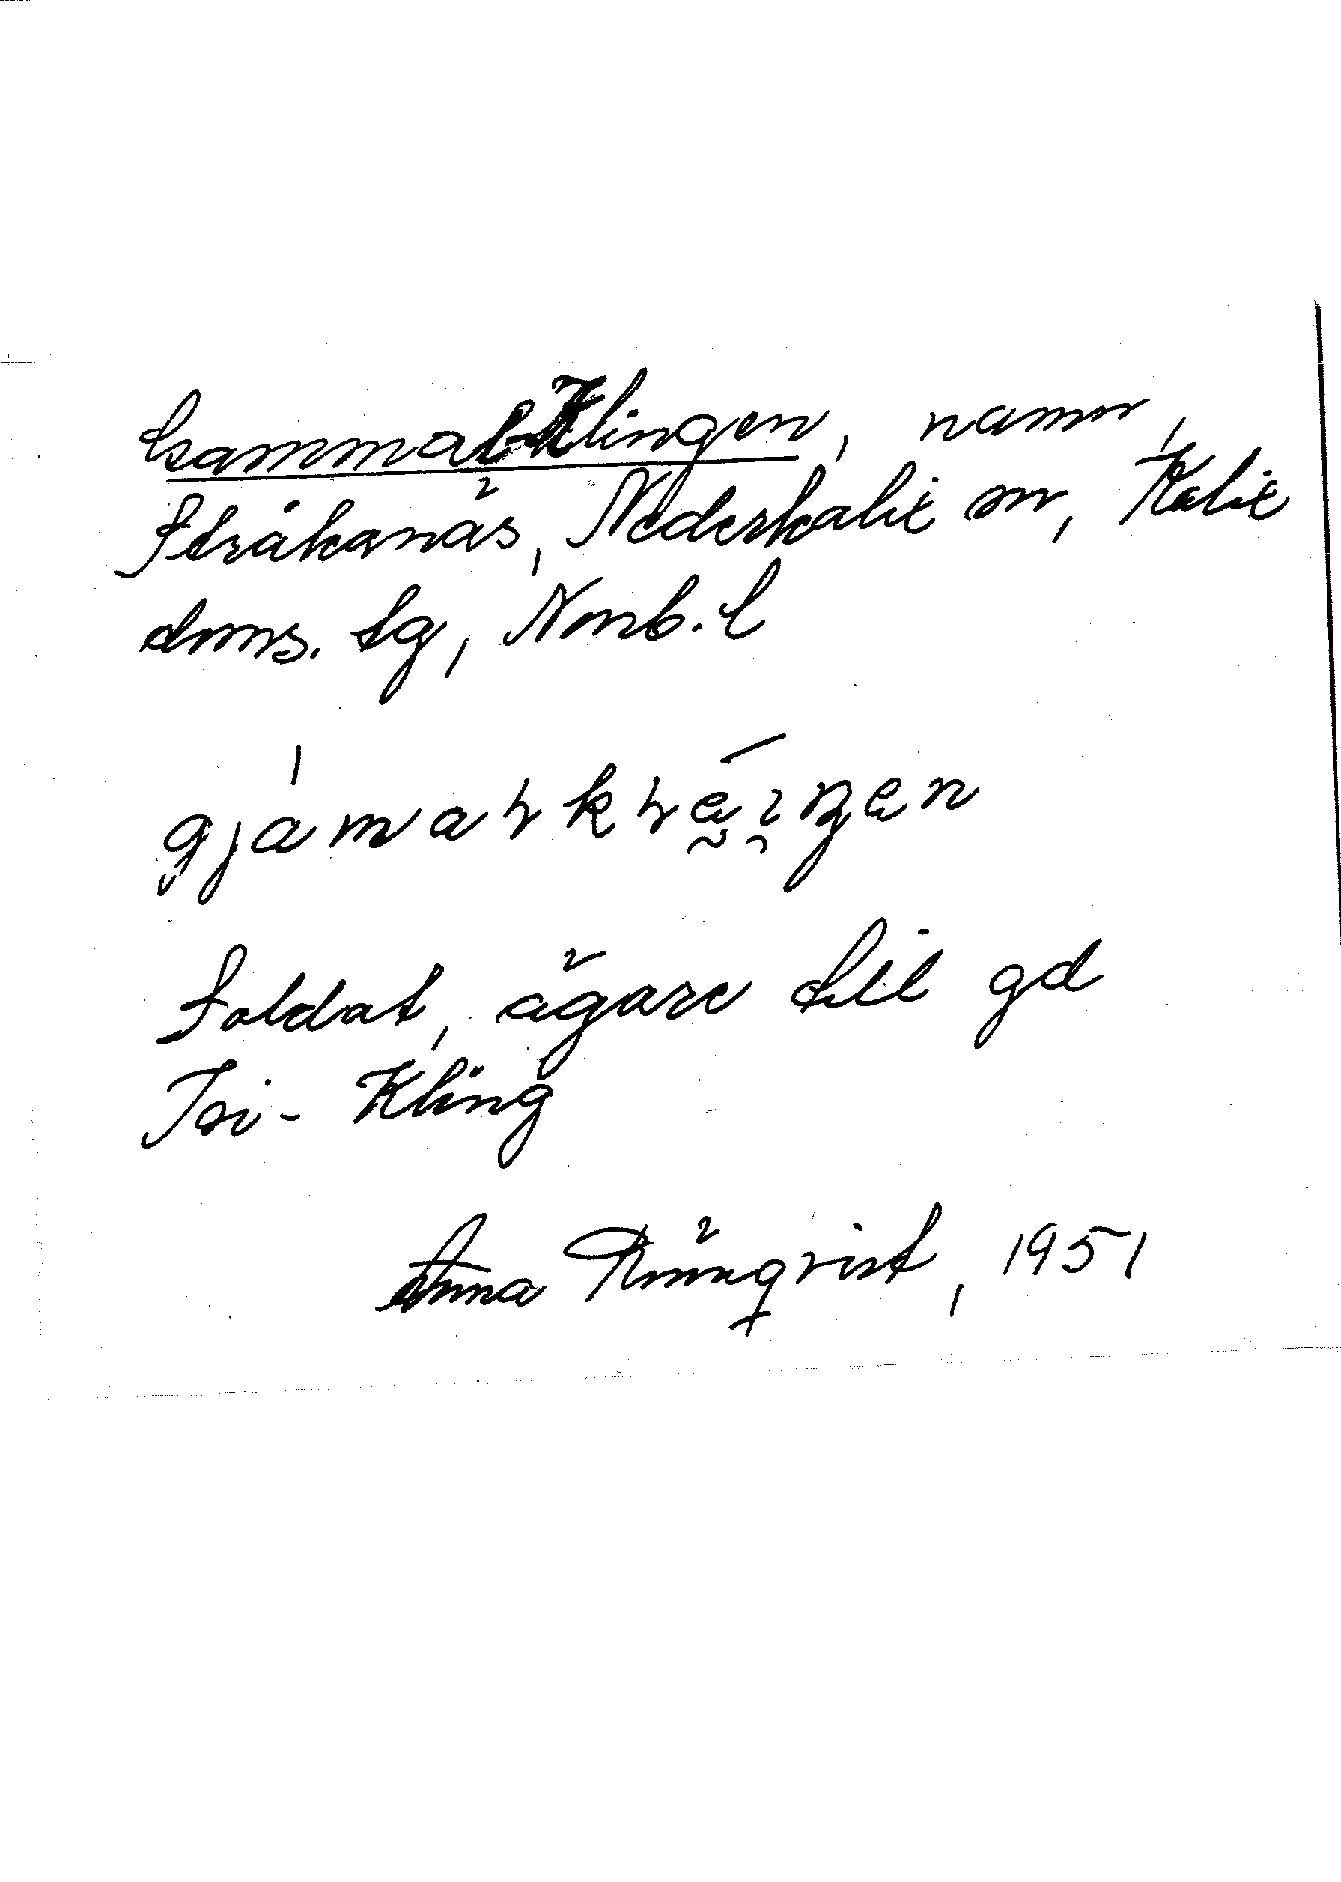 GammalKlingen, namn,
Stråkanäs, Nederkalix sn, Kalix
doms. tg, Norrb. l
Soldat, ägare till gd
Isi-Kling
Anna Rönnqvist, 1951